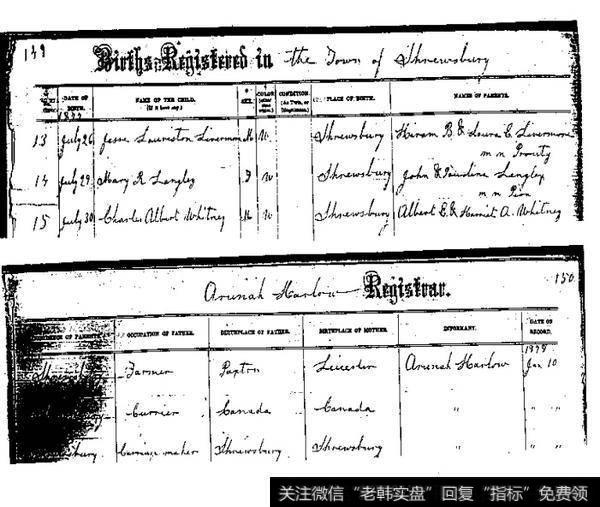 149
Births Registered in the Town of Shrewsbury
DATE OF BIRTH. NAME OF THE CHILD. SEX. COLOR CONDITION PLACE OF BIRTH. NAMES OF PARENTS.
1877
13 July 26 Jesse Laureston Livermore M W Shrewsbury Hiram B & Laura E Livermore
m n Prouty
14 July 29 Mary R Langley F W Shrewsbury John & Langley
m n
15 July 30 Charles Albert Whitney M W Shrewsbury Albert E & Harriet A. Whitney
Arunah Harlow Registrar. 150
OCCUPATION OF FATHER. BIRTHPLACE OF FATHER. BIRTHPLACE OF MOTHER. INFORMANT. DATE OF RECORD.
1878
Farmer Paxton Leicester Arunah Harlow Jan 10
Currier Canada Canada " " "
Carriage maker Shrewsbury Shrewsbury " " "
关注微信“老韩实盘”回复“指标”免费领